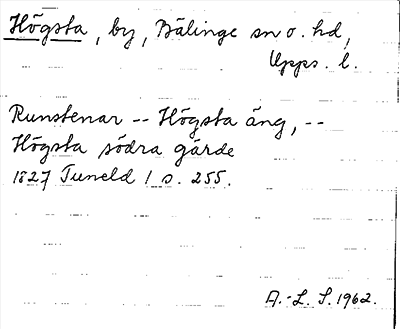 Högsta, by, Bälinge sn o. hd,
Upps. l.
Runstenar -- Högsta äng, --
Högsta södra gärde
1827 Tuneld 1 s. 255.
A.-L. S. 1962.